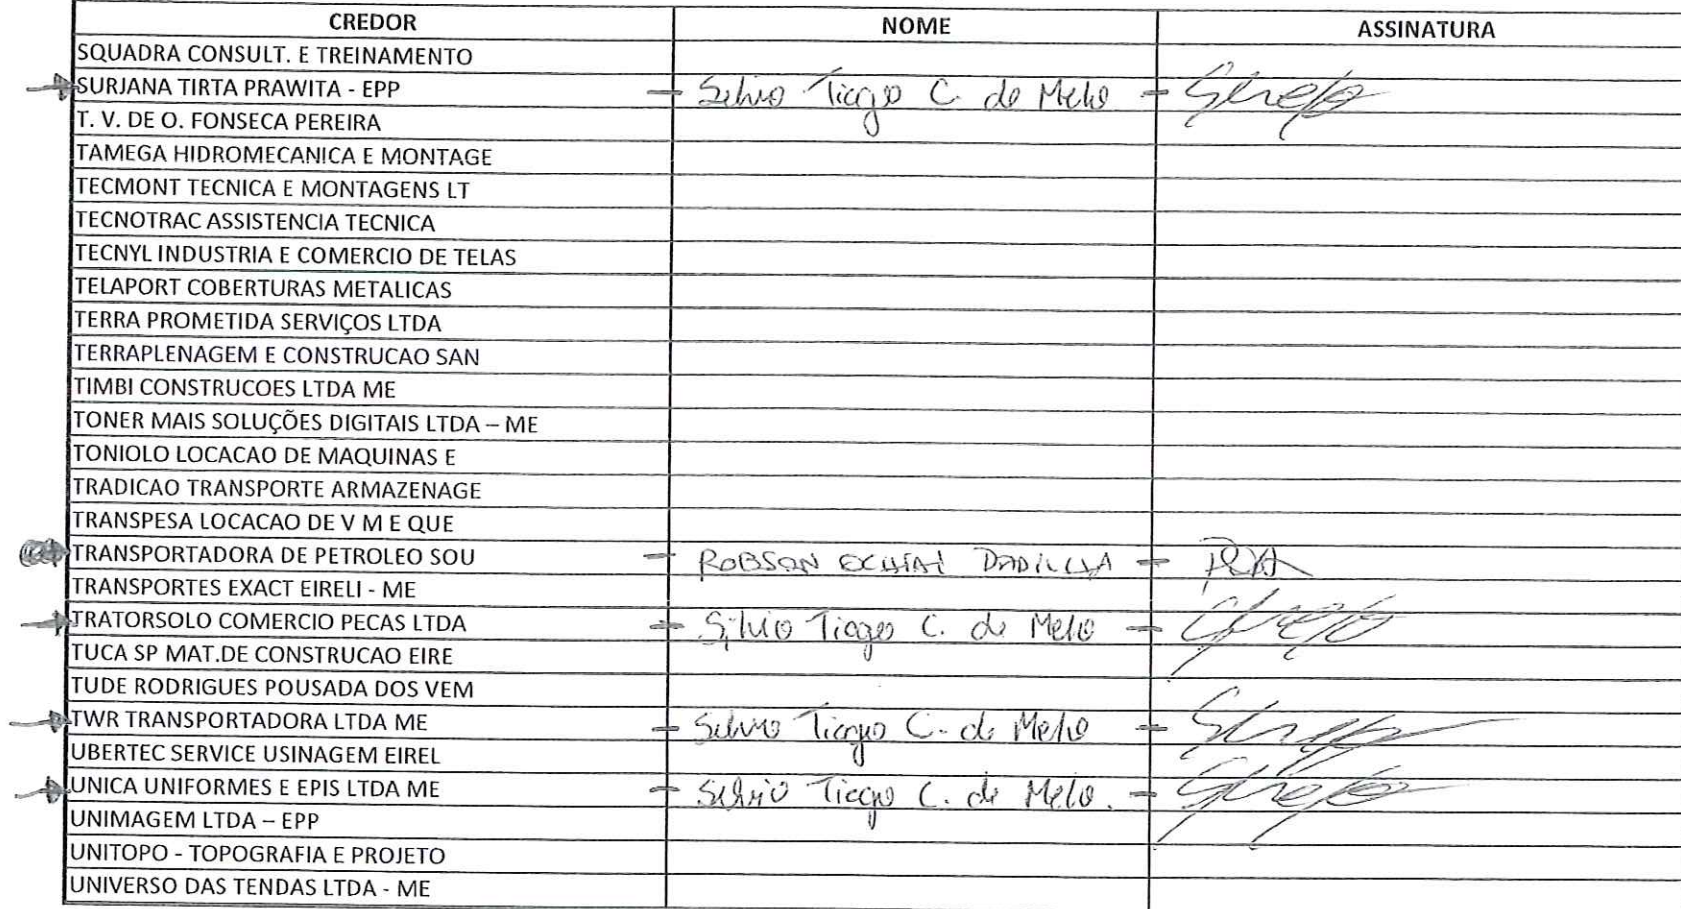 CREDOR NOME ASSINATURA
SQUADRA CONSULT. E TREINAMENTO
SURJANA TIRTA PRAWITA - EPP - Silvio Tiago C. de Melo -
T. V. DE O. FONSECA PEREIRA
TAMEGA HIDROMECANICA E MONTAGE
TECMONT TECNICA E MONTAGENS LT
TECNOTRAC ASSISTENCIA TECNICA
TECNYL INDUSTRIA E COMERCIO DE TELAS
TELAPORT COBERTURAS METALICAS
TERRA PROMETIDA SERVIÇOS LTDA
TERRAPLENAGEM E CONSTRUCAO SAN
TIMBI CONSTRUCOES LTDA ME
TONER MAIS SOLUÇÕES DIGITAIS LTDA – ME
TONIOLO LOCACAO DE MAQUINAS E
TRADICAO TRANSPORTE ARMAZENAGE
TRANSPESA LOCACAO DE V M E QUE
TRANSPORTADORA DE PETROLEO SOU - ROBSON -
TRANSPORTES EXACT EIRELI - ME
TRATORSOLO COMERCIO PECAS LTDA - Silvio Tiago C. de Melo -
TUCA SP MAT.DE CONSTRUCAO EIRE
TUDE RODRIGUES POUSADA DOS VEM
TWR TRANSPORTADORA LTDA ME - Silvio Tiago C. de Melo -
UBERTEC SERVICE USINAGEM EIREL
UNICA UNIFORMES E EPIS LTDA ME - Silvio Tiago C. de Melo. -
UNIMAGEM LTDA – EPP
UNITOPO - TOPOGRAFIA E PROJETO
UNIVERSO DAS TENDAS LTDA - ME